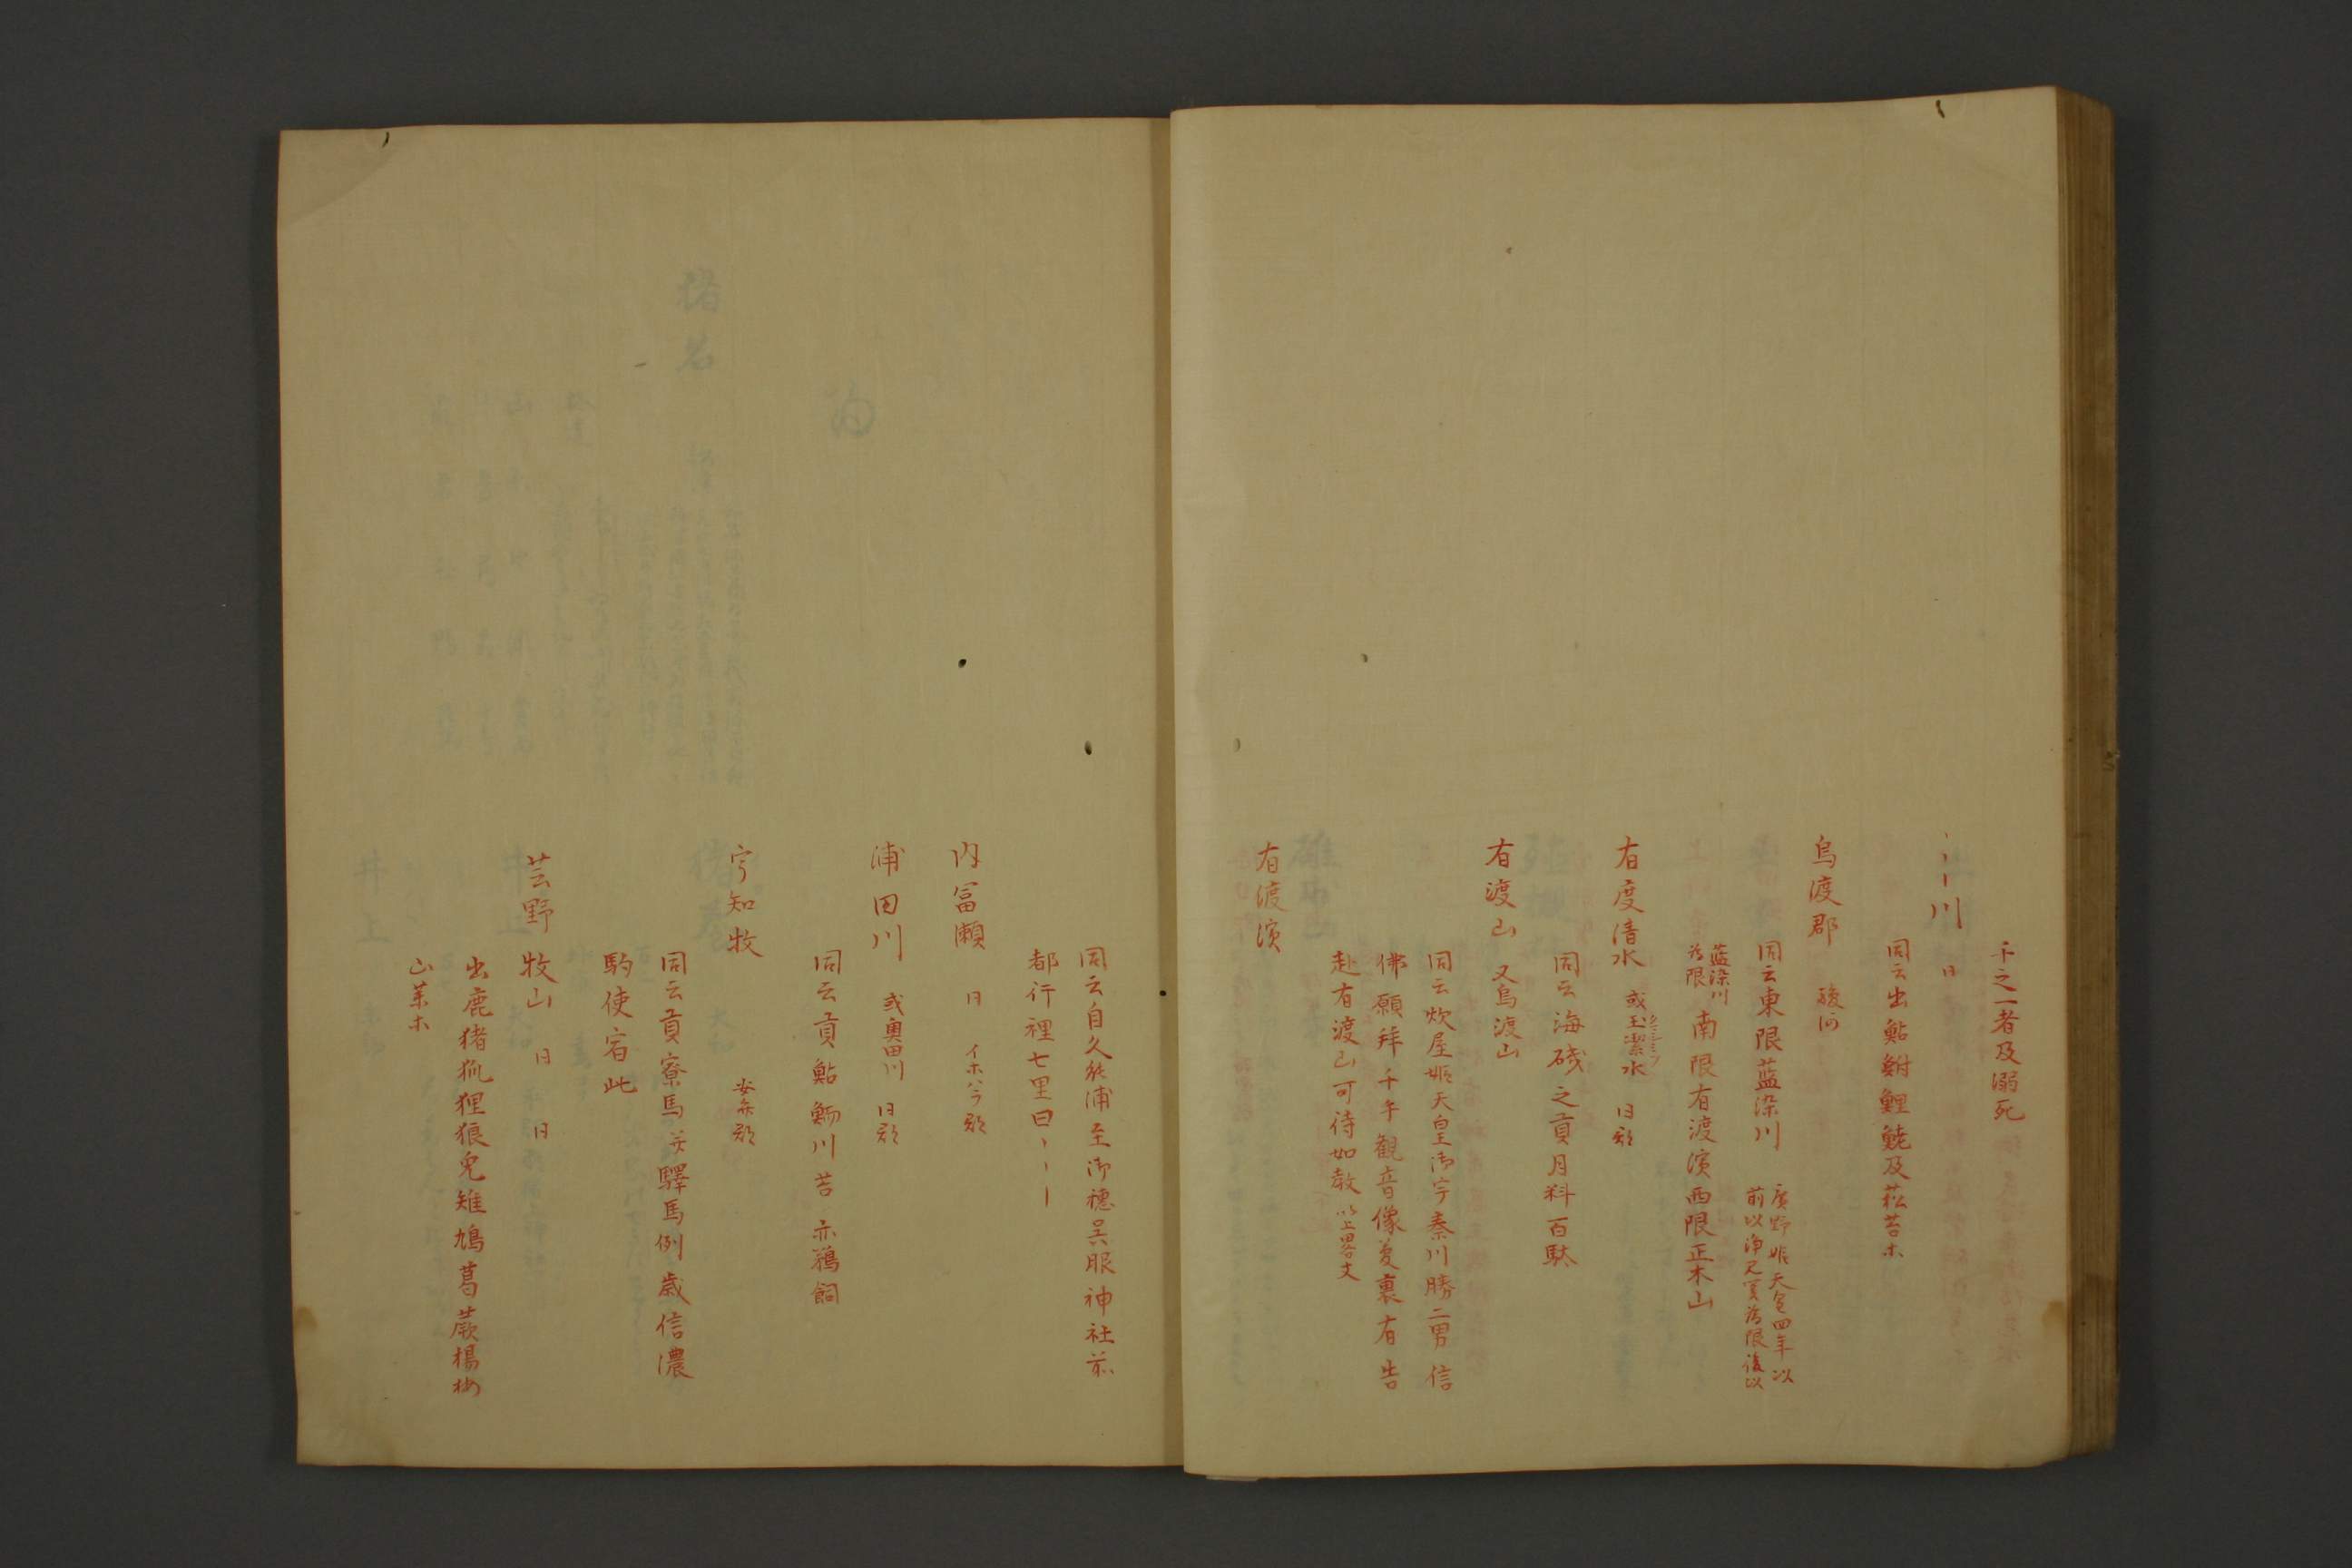 千之一者及溺死
〻〻川 日
同云出鮎鮒鯉鮱及菘苔木
烏渡郡 駿河
同云東限藍染川 廣野姫天皇四年以
前以為限後以
藍染川
為限
南限有渡濱西限正木山
有度清水 或玉潔水 日郡
同云海磯之貢月料百駄
有渡山 又烏渡山
同云炊屋姫天皇御宇秦川勝二男信
佛願拜千手觀音像夢裏有告
赴有渡山可待如教 以上畧文
有渡濱
同云自久能浦至御穗呉服神社前
都行裡七里曰〻〻〻
内冨瀬 日 イホハラ郡
浦田川 或奥田川 日郡
同云貢鮎鰯川苔亦鵜飼
宇知牧 安弁郡
同云貢寮馬并驛馬例歳信濃
駒使宿此
芸野牧山 日 日
出鹿猪狐狸狼兔雉鳩葛蕨楊梅
山菓木